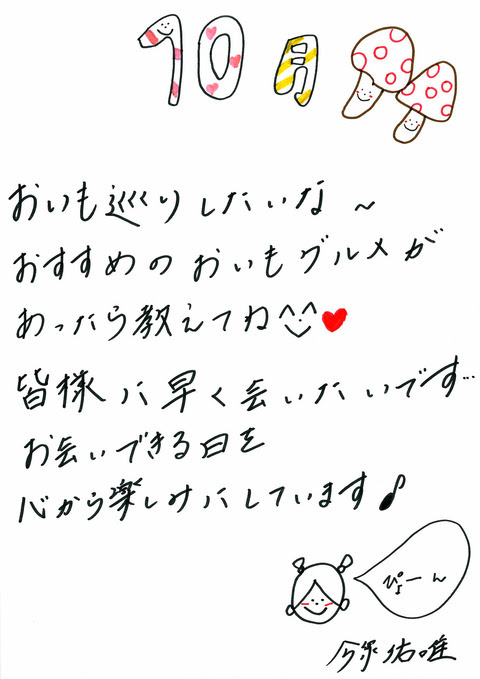 10月
おいも巡りしたいな～
おすすめのおいもグルメが
あったら教えてね^^
皆様に早く会いたいです…
お会いできる日を
心から楽しみにしています♪
ぴょーん
今泉佑唯